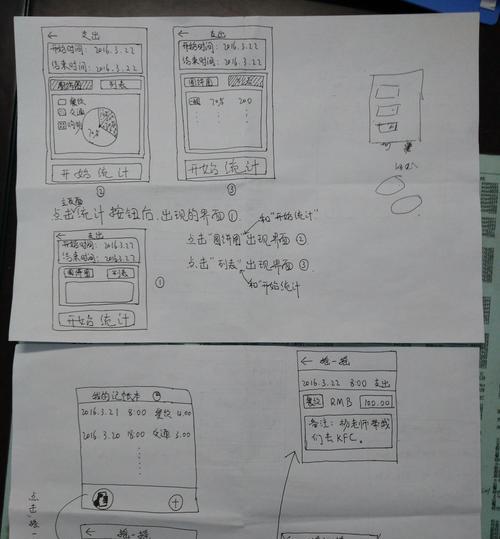 ← 支出
开始时间: 2016.3.22
结束时间: 2016.3.22
圆饼图 列表
餐饮
交通
70%
开始统计
②
← 支出
开始时间: 2016.3.22
结束时间: 2016.3.22
圆饼图 列表
70% 200
开始统计
③
主页面
点击统计按钮后,出现的界面①
← 支出
开始时间: 2016.3.22
结束时间: 2016.3.22
圆饼图 列表
开始统计
①
和"开始统计"
点击"圆饼图"出现界面②
点击"列表"出现界面③
和"开始统计
我的记帐本
2016.3.21 8:00 餐饮 4.00
2016.3.20 18:00 交通 3.00
+
← 摇一摇
2016.3.22 8:00 支出
餐饮 RMB 100.00
备注: 杨老师带我
们去KFC。
点击"摇一
← 摇一摇